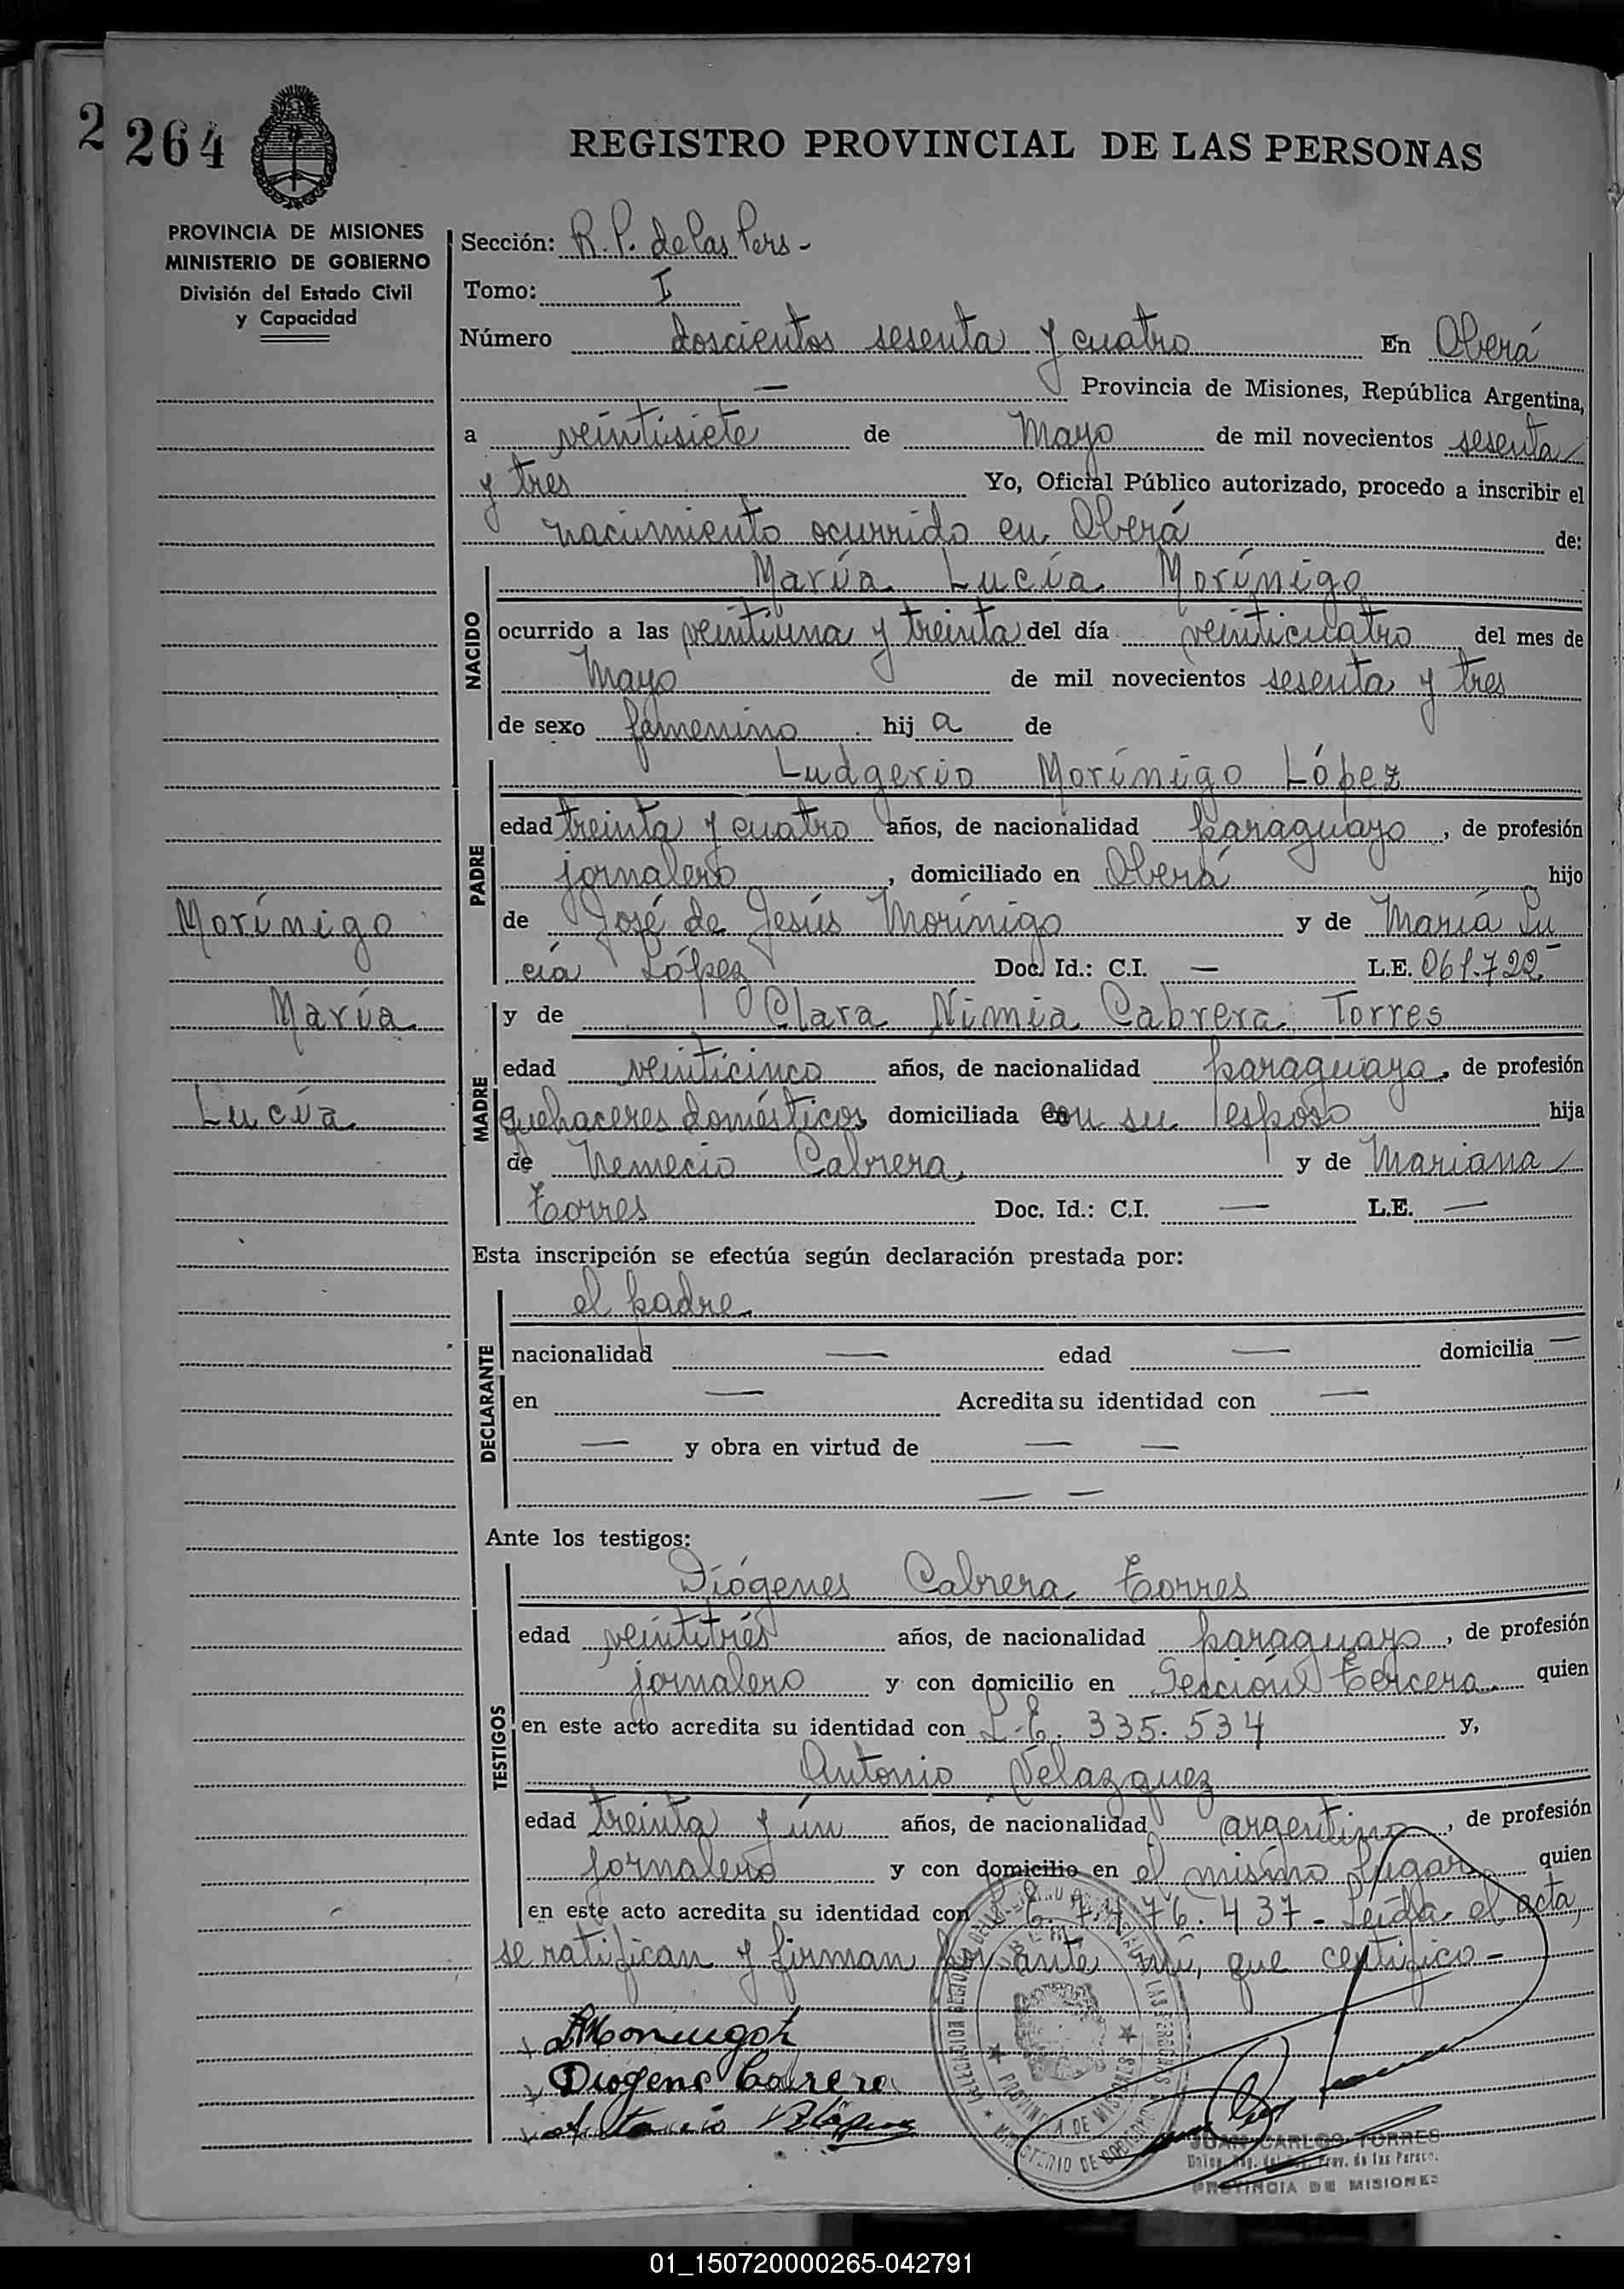 2
264
REGISTRO PROVINCIAL DE LAS PERSONAS
PROVINCIA DE MISIONES
MINISTERIO DE GOBIERNO
División del Estado Civil
y Capacidad
Sección: R. P. de las Pers -
Tomo: I
Número doscientos sesenta y cuatro En Oberá
— Provincia de Misiones, República Argentina,
a veintisiete de Mayo de mil novecientos sesenta
y tres Yo, Oficial Público autorizado, procedo a inscribir el
nacimiento ocurrido en Oberá de:
NACIDO
María Lucía Morínigo
ocurrido a las veintiuna y treinta del día veinticuatro del mes de
Mayo de mil novecientos sesenta y tres
de sexo femenino hij a de
PADRE
Ludgerio Morínigo López
edad treinta y cuatro años, de nacionalidad paraguayo, de profesión
jornalero, domiciliado en Oberá hijo
de José de Jesús Morínigo y de María Lu
cía López Doc. Id.: C.I. — L.E. 061.722.-
Morínigo
María
Lucía
MADRE
y de Clara Nimia Cabrera Torres
edad veinticinco años, de nacionalidad paraguaya, de profesión
quehaceres domésticos domiciliada con su esposo hija
de Nemecio Cabrera y de Mariana
Torres Doc. Id.: C.I. — L.E. —
Esta inscripción se efectúa según declaración prestada por:
DECLARANTE
el padre
nacionalidad — edad — domicilia —
en — Acredita su identidad con —
— y obra en virtud de — —
— —
Ante los testigos:
TESTIGOS
Diógenes Cabrera Torres
edad veintitrés años, de nacionalidad paraguayo, de profesión
jornalero y con domicilio en Sección Tercera quien
en este acto acredita su identidad con L.E. 335.534 y,
Antonio Velazquez
edad treinta y ún años, de nacionalidad argentino, de profesión
jornalero y con domicilio en el mismo lugar quien
en este acto acredita su identidad con L.E. 7.476.437- Leída el acta,
se ratifican y firman por ante mí, que certifico -
Diogene Cabrera
Antonio
PROVINCIA DE MISIONES
MINISTERIO DE GOBIERNO
JUAN CARLOS TORRES
Prov. de las Person.
PROVINCIA DE MISIONES
01_150720000265-042791